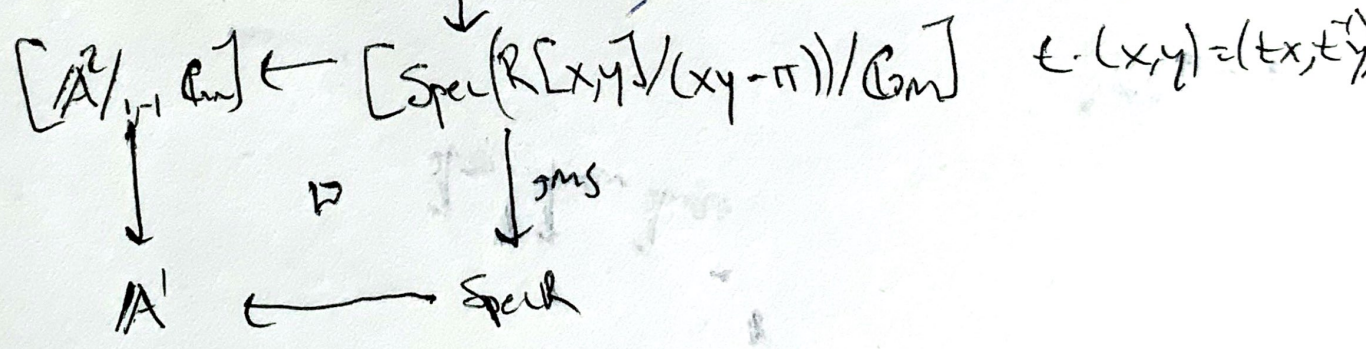 [𝔸²/₁,₋₁ 𝔾m] ← [Spec(R[x,y]/(xy-π))/𝔾m] t·(x,y)=(tx,t⁻¹y)
↓ □ ↓ gms
𝔸¹ ← Spec R